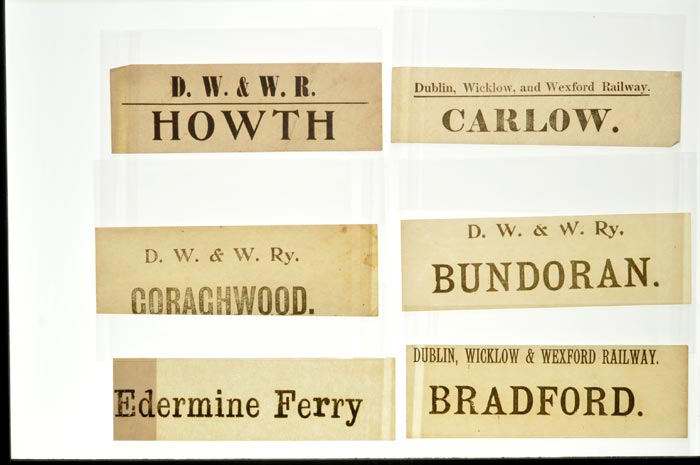 D. W. & W. R.
HOWTH
Dublin, Wicklow, and Wexford Railway.
CARLOW.
D. W. & W. Ry.
GORAGHWOOD.
D. W. & W. Ry.
BUNDORAN.
Edermine Ferry
DUBLIN, WICKLOW & WEXFORD RAILWAY.
BRADFORD.